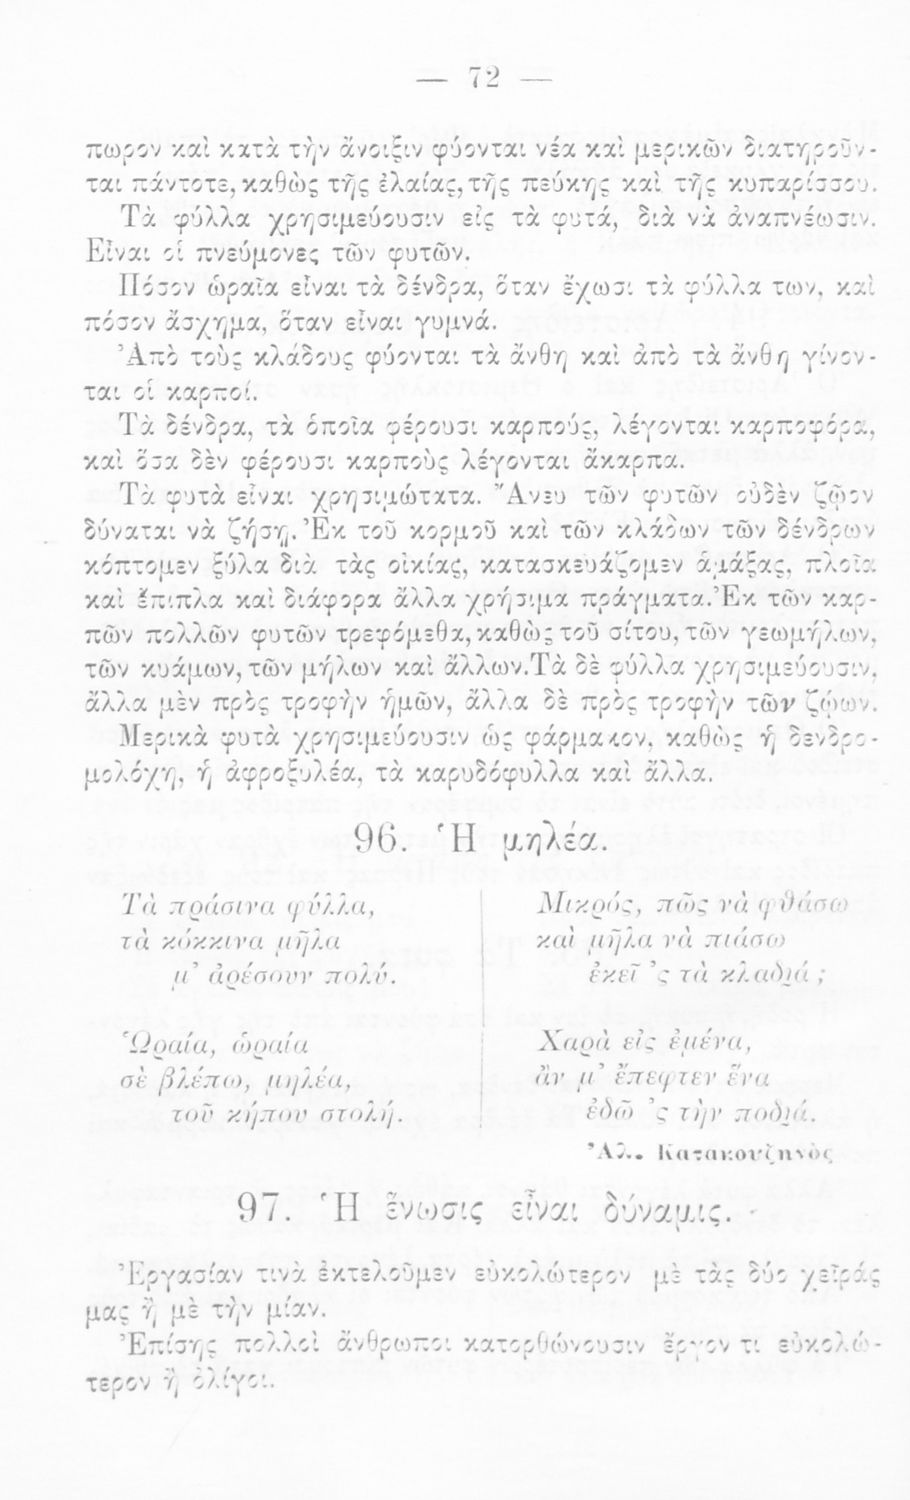 — 72 —
πωρον καὶ κατὰ τὴν ἄνοιξιν φύονται νέα καὶ μερικῶν διατηροῦν-
ται πάντοτε, καθὼς τῆς ἐλαίας, τῆς πεύκης καὶ τῆς κυπαρίσσου.
Τὰ φύλλα χρησιμεύουσιν εἰς τὰ φυτά, διὰ νὰ ἀναπνέωσιν.
Εἶναι οἱ πνεύμονες τῶν φυτῶν.
Πόσον ὡραῖα εἶναι τὰ δένδρα, ὅταν ἔχωσι τὰ φύλλα των, καὶ
πόσον ἄσχημα, ὅταν εἶναι γυμνά.
Ἀπὸ τοὺς κλάδους φύονται τὰ ἄνθη καὶ ἀπὸ τὰ ἄνθη γίνον-
ται οἱ καρποί.
Τὰ δένδρα, τὰ ὁποῖα φέρουσι καρπούς, λέγονται καρποφόρα,
καὶ ὅσα δὲν φέρουσι καρποὺς λέγονται ἄκαρπα.
Τὰ φυτὰ εἶναι χρησιμώτατα. Ἄνευ τῶν φυτῶν οὐδὲν ζῷον
δύναται νὰ ζήσῃ. Ἐκ τοῦ κορμοῦ καὶ τῶν κλάδων τῶν δένδρων
κόπτομεν ξύλα διὰ τὰς οἰκίας, κατασκευάζομεν ἁμάξας, πλοῖα
καὶ ἔπιπλα καὶ διάφορα ἄλλα χρήσιμα πράγματα. Ἐκ τῶν καρ-
πῶν πολλῶν φυτῶν τρεφόμεθα, καθὼς τοῦ σίτου, τῶν γεωμήλων,
τῶν κυάμων, τῶν μήλων καὶ ἄλλων. Τὰ δὲ φύλλα χρησιμεύουσιν,
ἄλλα μὲν πρὸς τροφὴν ἡμῶν, ἄλλα δὲ πρὸς τροφὴν τῶν ζῴων.
Μερικὰ φυτὰ χρησιμεύουσιν ὡς φάρμακον, καθὼς ἡ δενδρο-
μολόχη, ἡ ἀφροξυλέα, τὰ καρυδόφυλλα καὶ ἄλλα.
96. Ἡ μηλέα.
Τὰ πράσινα φύλλα,
τὰ κόκκινα μῆλα
μ' ἀρέσουν πολύ.
Ὡραία, ὡραία
σὲ βλέπω, μηλέα,
τοῦ κήπου στολή.
Μικρός, πῶς νὰ φθάσω
καὶ μῆλα νὰ πιάσω
ἐκεῖ 'ς τὰ κλαδιά ;
Χαρὰ εἰς ἐμένα,
ἂν μ' ἔπεφτεν ἕνα
ἐδῶ 'ς τὴν ποδιά.
Ἀλ. Κατακουζηνὸς
97. Ἡ ἕνωσις εἶναι δύναμις.
Ἐργασίαν τινὰ ἐκτελοῦμεν εὐκολώτερον μὲ τὰς δύο χεῖράς
μας ἢ μὲ τὴν μίαν.
Ἐπίσης πολλοὶ ἄνθρωποι κατορθώνουσιν ἔργον τι εὐκολώ-
τερον ἢ ὀλίγοι.